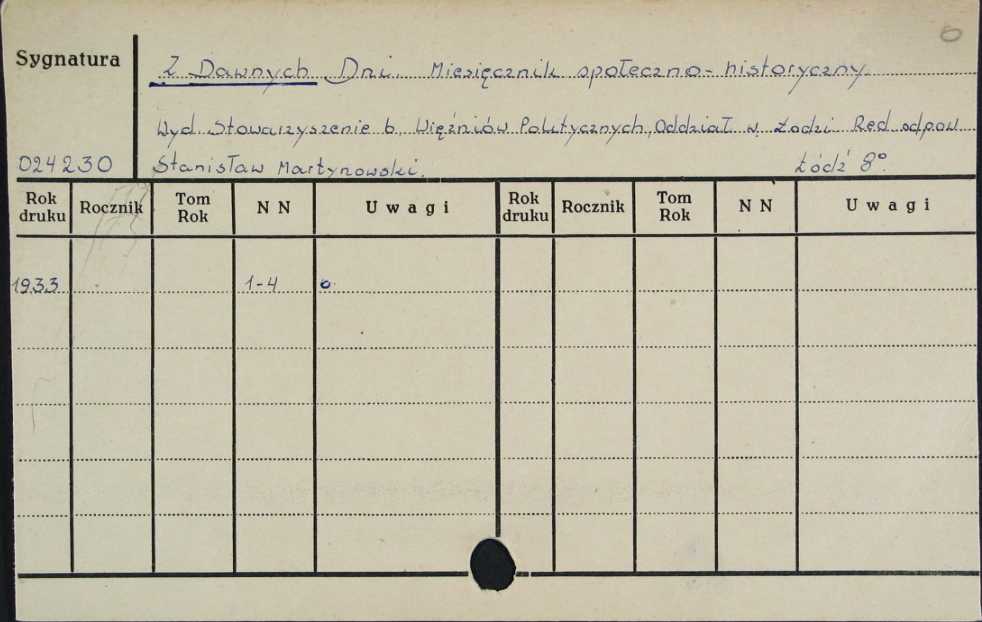 o
Sygnatura
Z Dawnych Dni. Miesięcznik społeczno-historyczny.
Wyd Stowarzyszenie b. Więźniów Politycznych, Oddział w Łodzi Red odpow
024230 Stanisław Martynowski. Łódź 8°
Rok druku Rocznik Tom Rok N N Uwagi Rok druku Rocznik Tom Rok N N Uwagi
1933 1-4 o